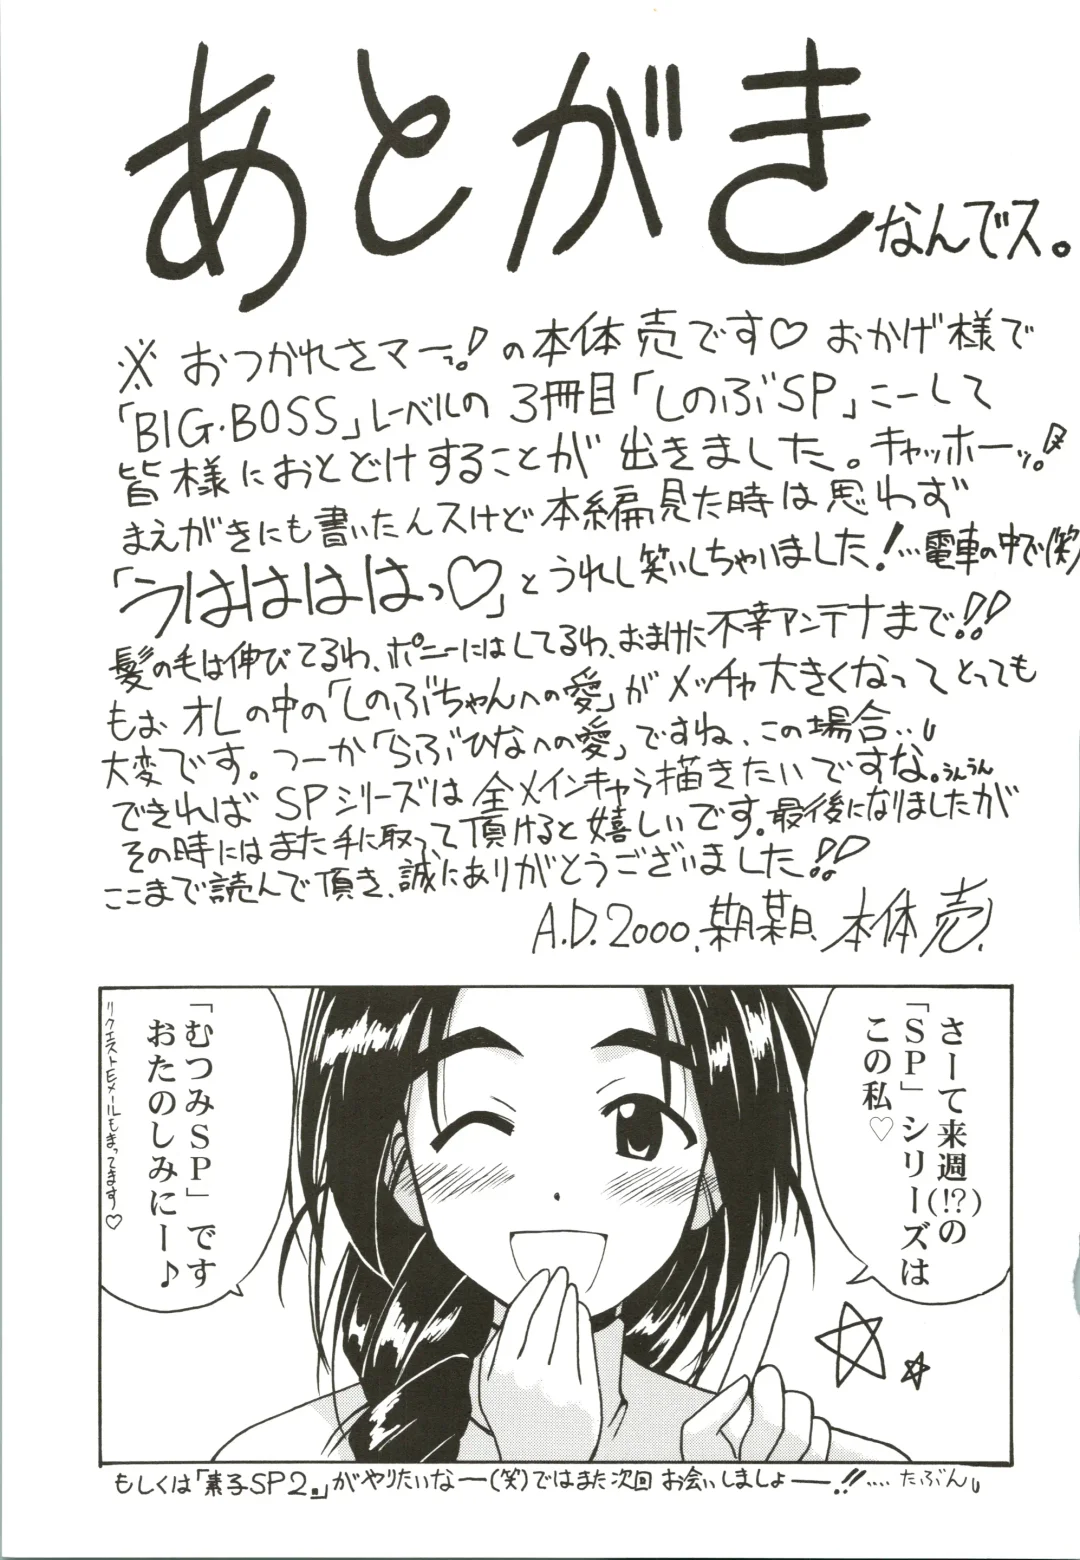 あとがき なんでス。
※おつかれさマーっ!の本体売です♡おかげ様で
「BIG・BOSS」レーベルの3冊目「しのぶSP」こーして
皆様におとどけすることが出きました。キャッホーッ!
まえがきにも書いたんスけど本編見た時は思わず
「うはははっ♡」とうれし笑いしちゃいました!…電車の中で(笑)
髪の毛は伸びてるわ、ポニーにはしてるわ、おまけに不幸アンテナまで!!
もぉオレの中の「しのぶちゃんへの愛」がメッチャ大きくなってとっても
大変です。つーか「らぶひなへの愛」ですね、この場合…
できればSPシリーズは全メインキャラ描きたいですな。うんうん
その時にはまた手に取って頂けると嬉しいです。最後になりましたが
ここまで読んで頂き、誠にありがとうございました!!
A.D.2000.某月某日、本体売.
さーて来週(!?)の
「SP」シリーズは
この私♡
「むつみSP」です
おたのしみにー♪
リクエストEメールもまってます♡
もしくは「素子SP2。」がやりたいなー(笑)ではまた次回お会いしましょー!!…たぶん